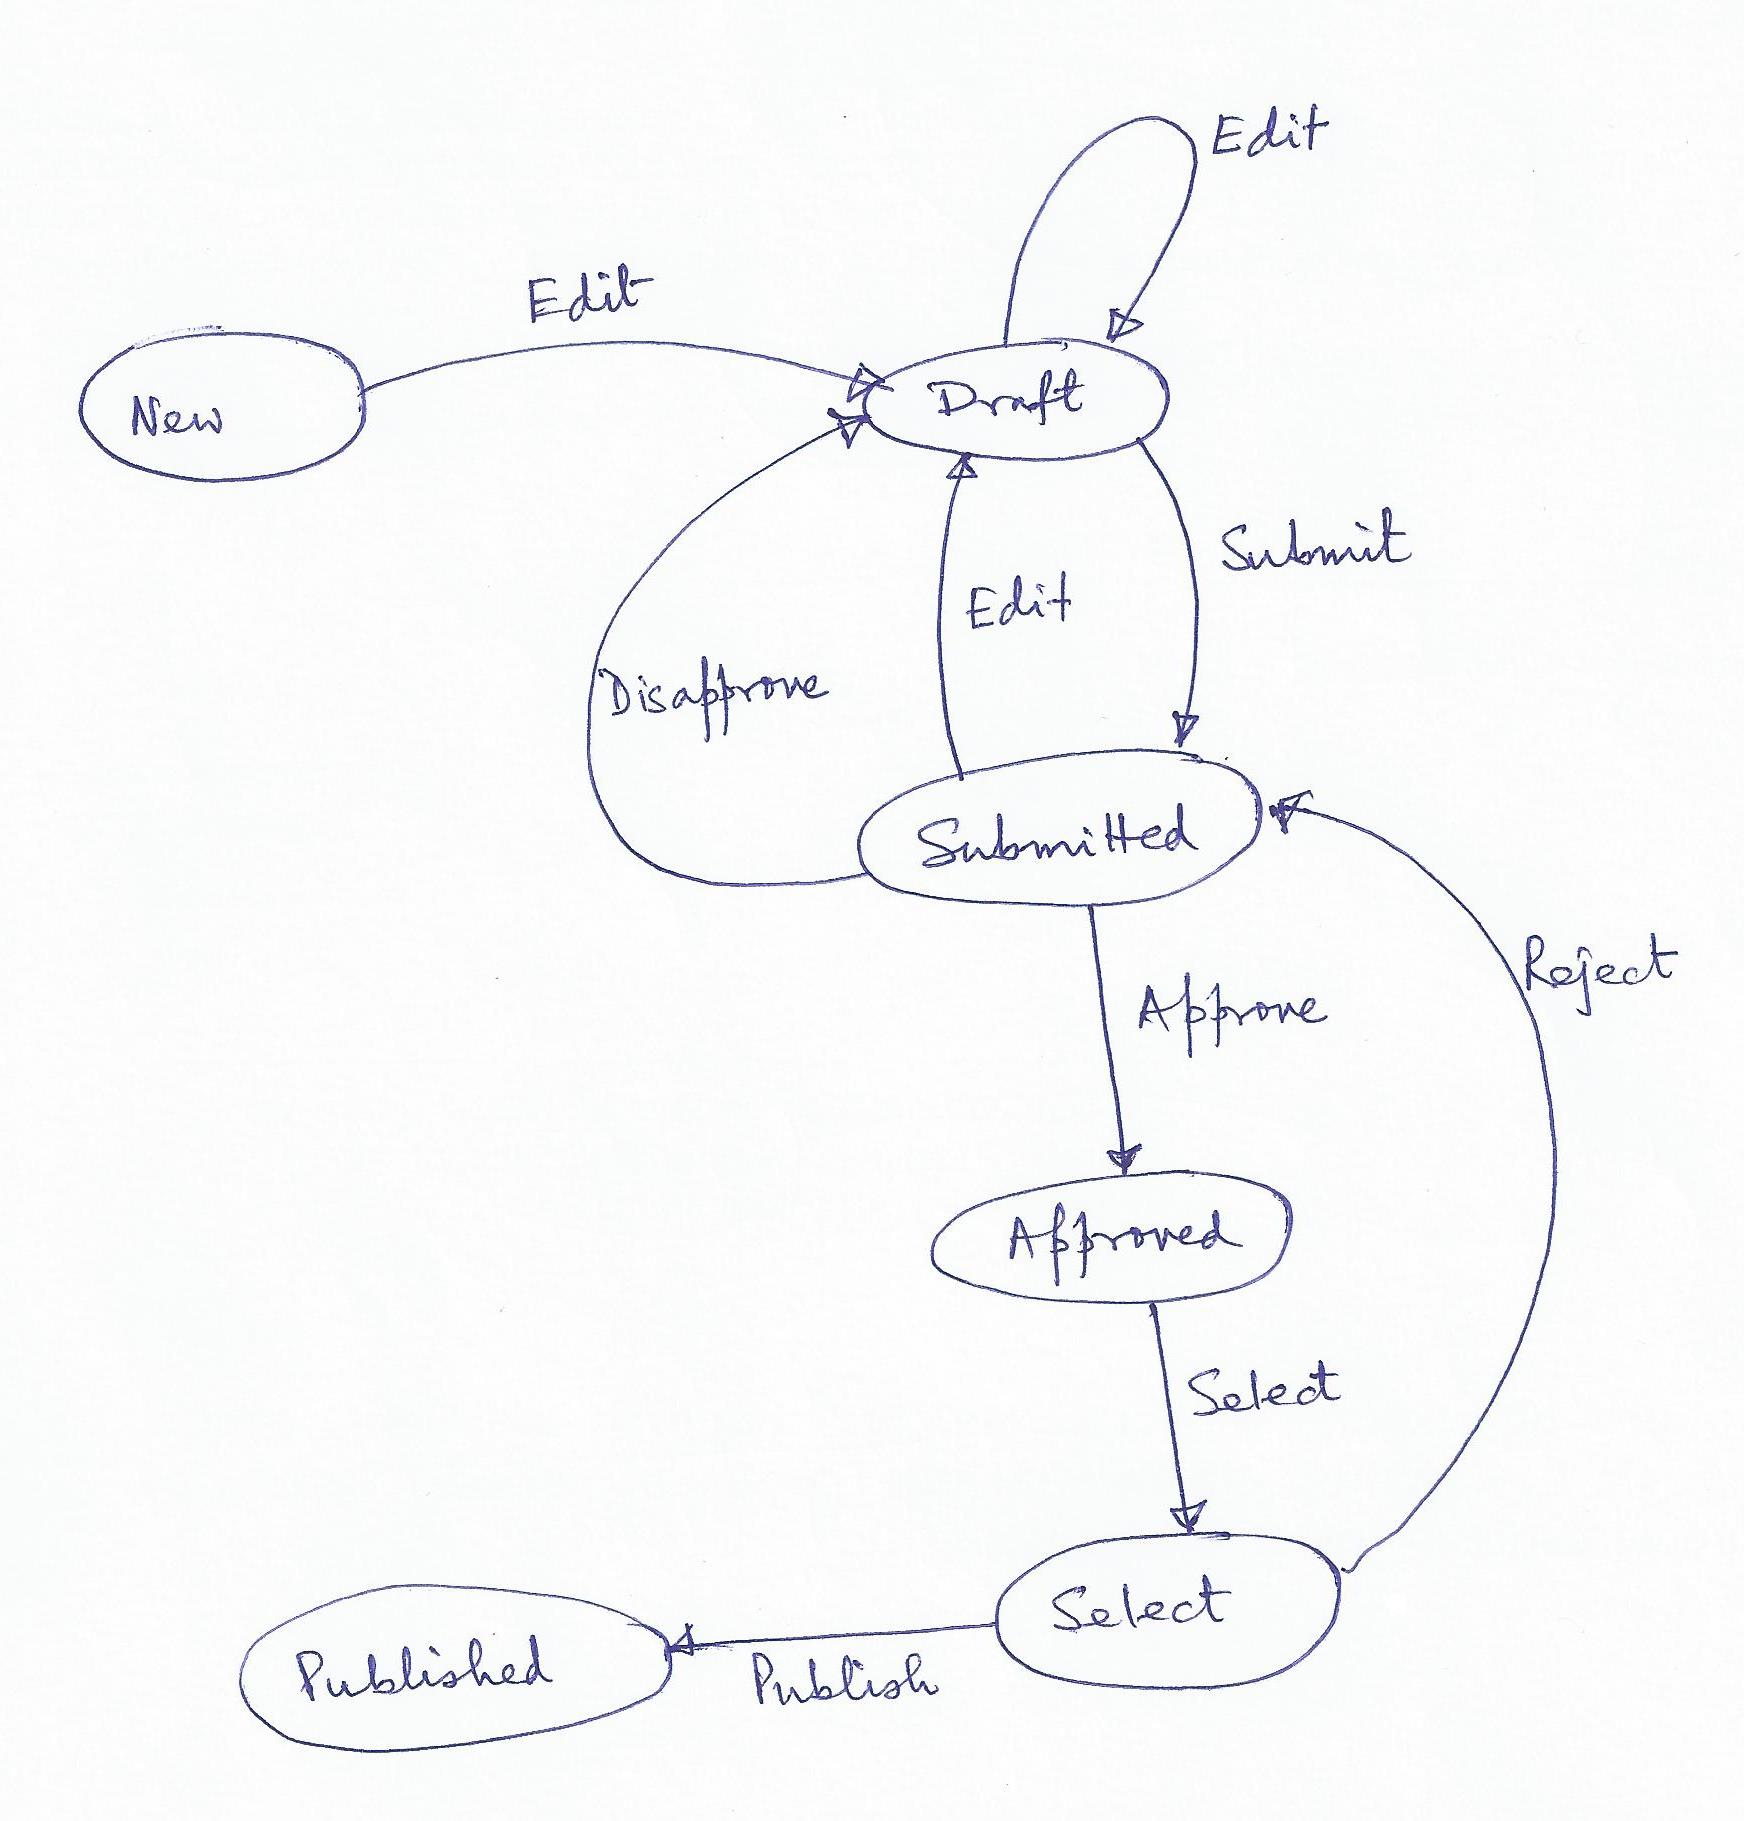 Edit
Edit
New
Draft
Submit
Edit
Disapprove
Submitted
Reject
Approve
Approved
Select
Select
Published
Publish